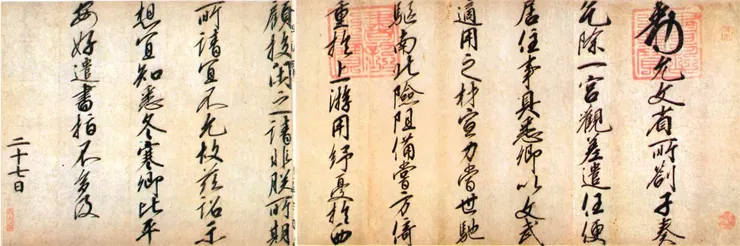 敕允文省所劄子奏
乞除一宮觀差遣任便
居住事具悉卿以文武
適用之材宣力當世馳
驅南北險阻備嘗方倚
重於上游用紓憂於西
顧投閑之請非朕所期
所請宜不允故茲詔示
想宜知悉冬寒卿比平
安好遣書指不多及
二十七日